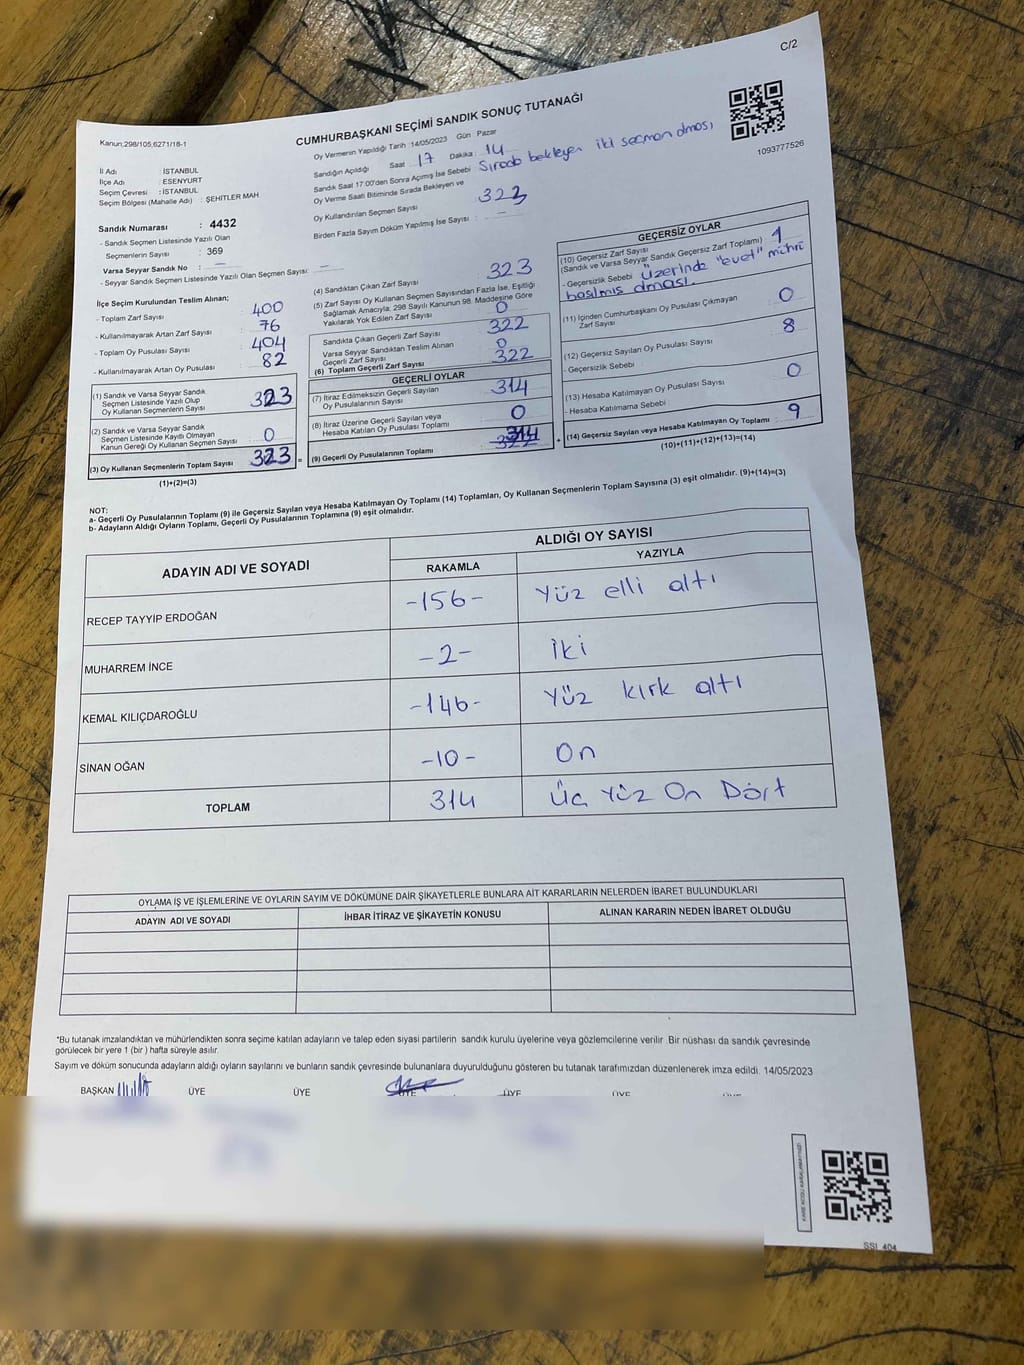 C/2
Kanun;298/105;6271/18-1
CUMHURBAŞKANI SEÇİMİ SANDIK SONUÇ TUTANAĞI
Oy Vermenin Yapıldığı Tarih 14/05/2023 Gün Pazar
1093777526
İl Adı : İSTANBUL
İlçe Adı : ESENYURT
Seçim Çevresi : İSTANBUL
Seçim Bölgesi (Mahalle Adı) : ŞEHİTLER MAH
Sandığın Açıldığı Saat 17 Dakika : 14
Sandık Saat 17:00'den Sonra Açılmış İse Sebebi Sırada bekleyen iki seçmen olması
Oy Verme Saati Bitiminde Sırada Bekleyen ve
Oy Kullandırılan Seçmen Sayısı 323
Birden Fazla Sayım Döküm Yapılmış İse Sayısı : –
Sandık Numarası : 4432
- Sandık Seçmen Listesinde Yazılı Olan
Seçmenlerin Sayısı : 369
Varsa Seyyar Sandık No : –
- Seyyar Sandık Seçmen Listesinde Yazılı Olan Seçmen Sayısı: –
İlçe Seçim Kurulundan Teslim Alınan;
- Toplam Zarf Sayısı : 400
- Kullanılmayarak Artan Zarf Sayısı : 76
- Toplam Oy Pusulası Sayısı : 404
- Kullanılmayarak Artan Oy Pusulası : 82
(1) Sandık ve Varsa Seyyar Sandık
Seçmen Listesinde Yazılı Olup
Oy Kullanan Seçmenlerin Sayısı 323
(2) Sandık ve Varsa Seyyar Sandık
Seçmen Listesinde Kayıtlı Olmayan
Kanun Gereği Oy Kullanan Seçmen Sayısı 0
(3) Oy Kullanan Seçmenlerin Toplam Sayısı 323 =
(1)+(2)=(3)
(4) Sandıktan Çıkan Zarf Sayısı 323
(5) Zarf Sayısı Oy Kullanan Seçmen Sayısından Fazla İse, Eşitliği
Sağlamak Amacıyla; 298 Sayılı Kanunun 98. Maddesine Göre
Yakılarak Yok Edilen Zarf Sayısı 0
Sandıkta Çıkan Geçerli Zarf Sayısı 322
Varsa Seyyar Sandıktan Teslim Alınan
Geçerli Zarf Sayısı 0
(6) Toplam Geçerli Zarf Sayısı 322
GEÇERLİ OYLAR
(7) İtiraz Edilmeksizin Geçerli Sayılan
Oy Pusulalarının Sayısı 314
(8) İtiraz Üzerine Geçerli Sayılan veya
Hesaba Katılan Oy Pusulası Toplamı 0
(9) Geçerli Oy Pusulalarının Toplamı 314 +
GEÇERSİZ OYLAR
(10) Geçersiz Zarf Sayısı
(Sandık ve Varsa Seyyar Sandık Geçersiz Zarf Toplamı) 1
- Geçersizlik Sebebi : Üzerinde "evet" mührü
basılmış olması.
(11) İçinden Cumhurbaşkanı Oy Pusulası Çıkmayan
Zarf Sayısı 0
(12) Geçersiz Sayılan Oy Pusulası Sayısı 8
- Geçersizlik Sebebi :
(13) Hesaba Katılmayan Oy Pusulası Sayısı 0
- Hesaba Katılmama Sebebi :
(14) Geçersiz Sayılan veya Hesaba Katılmayan Oy Toplamı 9
(10)+(11)+(12)+(13)=(14)
NOT:
a- Geçerli Oy Pusulalarının Toplamı (9) ile Geçersiz Sayılan veya Hesaba Katılmayan Oy Toplamı (14) Toplamları, Oy Kullanan Seçmenlerin Toplam Sayısına (3) eşit olmalıdır. (9)+(14)=(3)
b- Adayların Aldığı Oyların Toplamı, Geçerli Oy Pusulalarının Toplamına (9) eşit olmalıdır.
ADAYIN ADI VE SOYADI
ALDIĞI OY SAYISI
RAKAMLA YAZIYLA
RECEP TAYYİP ERDOĞAN -156- Yüz elli altı
MUHARREM İNCE -2- iki
KEMAL KILIÇDAROĞLU -146- Yüz kırk altı
SİNAN OĞAN -10- On
TOPLAM 314 Üç Yüz On Dört
OYLAMA İŞ VE İŞLEMLERİNE VE OYLARIN SAYIM VE DÖKÜMÜNE DAİR ŞİKAYETLERLE BUNLARA AİT KARARLARIN NELERDEN İBARET BULUNDUKLARI
ADAYIN ADI VE SOYADI İHBAR İTİRAZ VE ŞİKAYETİN KONUSU ALINAN KARARIN NEDEN İBARET OLDUĞU
"Bu tutanak imzalandıktan ve mühürlendikten sonra seçime katılan adayların ve talep eden siyasi partilerin sandık kurulu üyelerine veya gözlemcilerine verilir. Bir nüshası da sandık çevresinde
görülecek bir yere 1 (bir ) hafta süreyle asılır.
Sayım ve döküm sonucunda adayların aldığı oyların sayılarını ve bunların sandık çevresinde bulunanlara duyurulduğunu gösteren bu tutanak tarafımızdan düzenlenerek imza edildi. 14/05/2023
BAŞKAN ÜYE ÜYE ÜYE ÜYE ÜYE
SSI_404